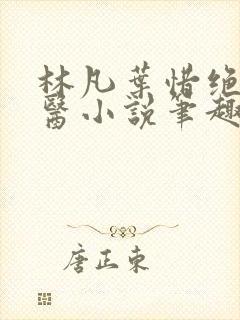 林凡葉惜绝
醫小説筆趣
唐正東